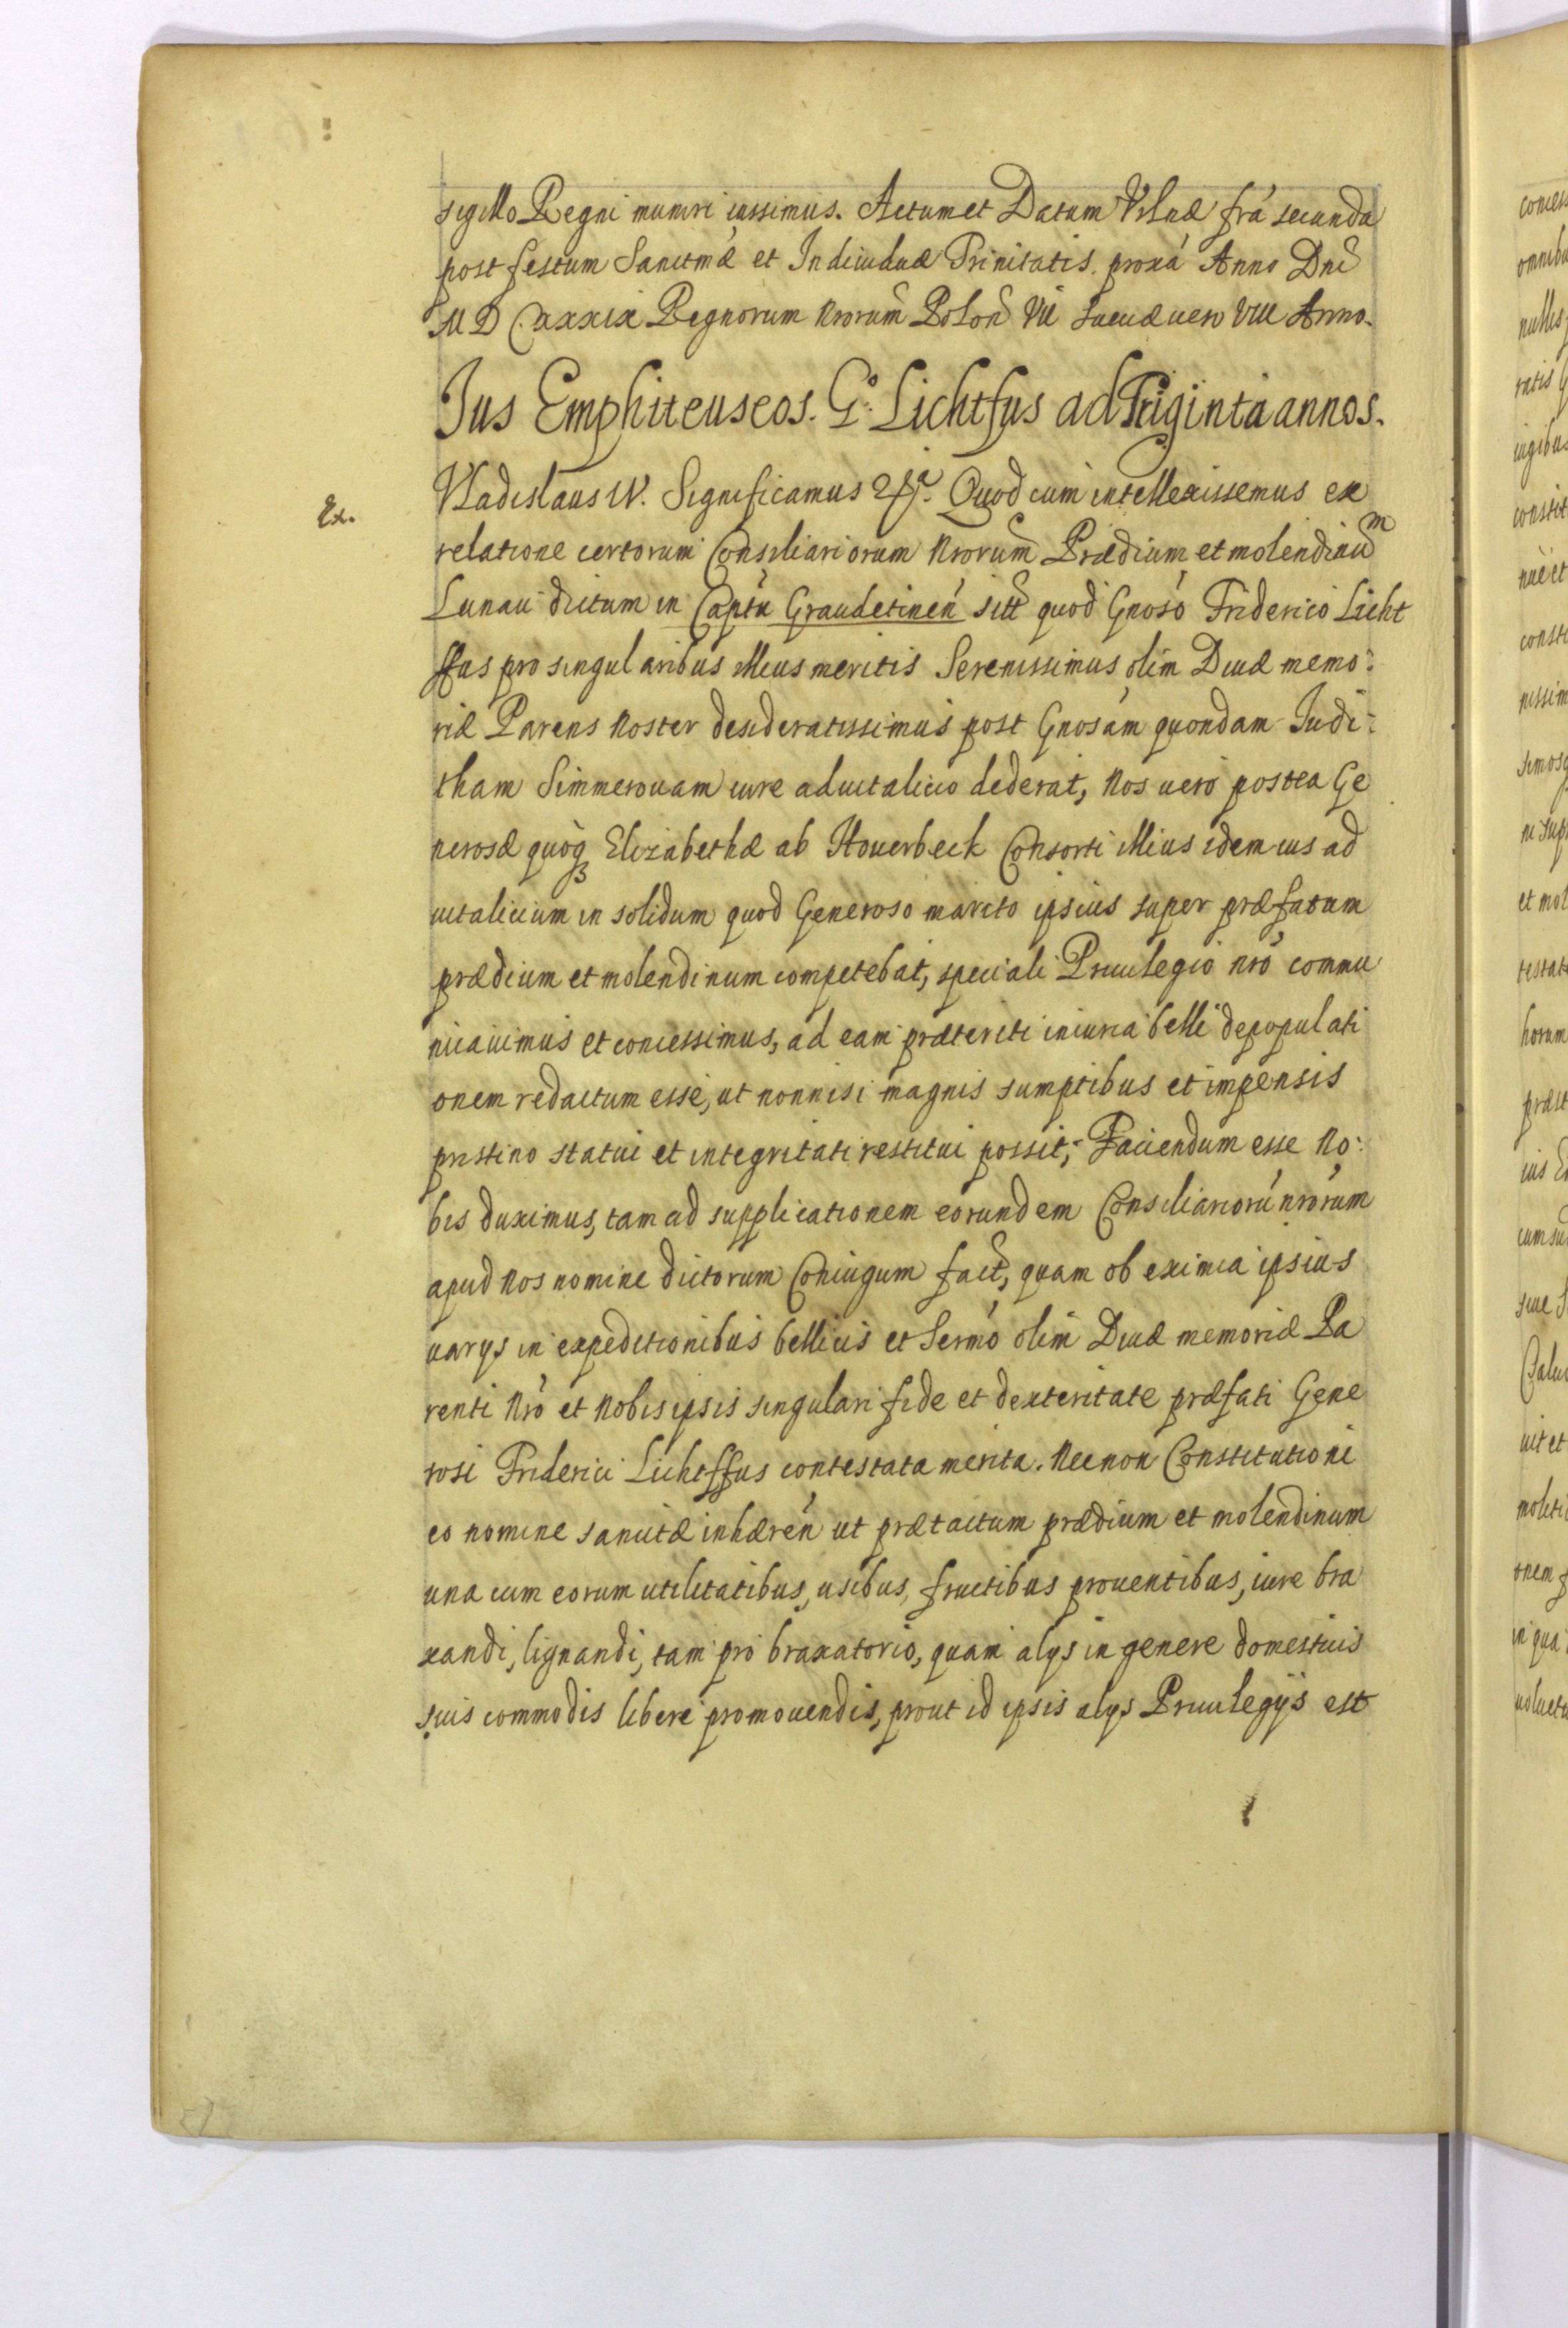 sigillo Regni muniri iussimus. Actum et Datum Vilnæ frá secunda
post festum Sanctmæ et Indiuiduæ Trinitatis. proxá Anno Dnĩ
M D CXXXIX Regnorum Nrorum Polon VII Sueciæ uero VIII Anno.
Jus Emphiteuseos. Gº: Lichtfus ad Triginta annos.
Ex.
Vladislaus IV. Significamus Quod cum intellexissemus ex
relatione certorum Consiliariorum Nrorum Prædium et molendinũm
Lunau dictum in Captu Graudetineń sitt quod Gnosó Friderico Licht
ffus pro singularibus illius meritis Serenissimus olim Diuæ memo:
riæ Parens Noster desideratissimus post Gnosám quondam Judi:
tham Simmerouam iure aduitalicio dederat, Nos uero postea Ge
nerosæ quoq₃ Elizabethæ ab Houerbeck Consorti illius idem ius ad
uitalicium in solidum quod Generoso marito ipsius super præfatum
prædium et molendinum competebat, speciali Priuilegio nró commu
nicauimus et concessimus, ad eam præteriti iniuria belli depopulati
onem redactum esse, ut nonnisi magnis sumptibus et impensis
pristino statui et integritati restitui possit; Faciendum esse No:
bis duximus, tam ad supplicationem eorundem Consiliariorú nrórum
apud Nos nomine dictorum Coniugum fact, quam ob eximia ipsius
uarys in expeditionibus bellicis et Sermó olim Diuæ memoriæ Pa
renti Nró et Nobis ipsis singulari fide et dexteritate præfati Gene
rosi Friderici Lichtffus contestata merita. Necnon Constitutioni
eo nomine sancitæ inhæreń ut prætactum prædium et molendinum
una cum eorum utilitatibus, usibus, fructibus prouentibus, iure bra
xandi, lignandi, tam pro braxatorio, quam alys in genere domesticis
suis commodis libere promouendis, prout id ipsis alys Priuilegÿs est